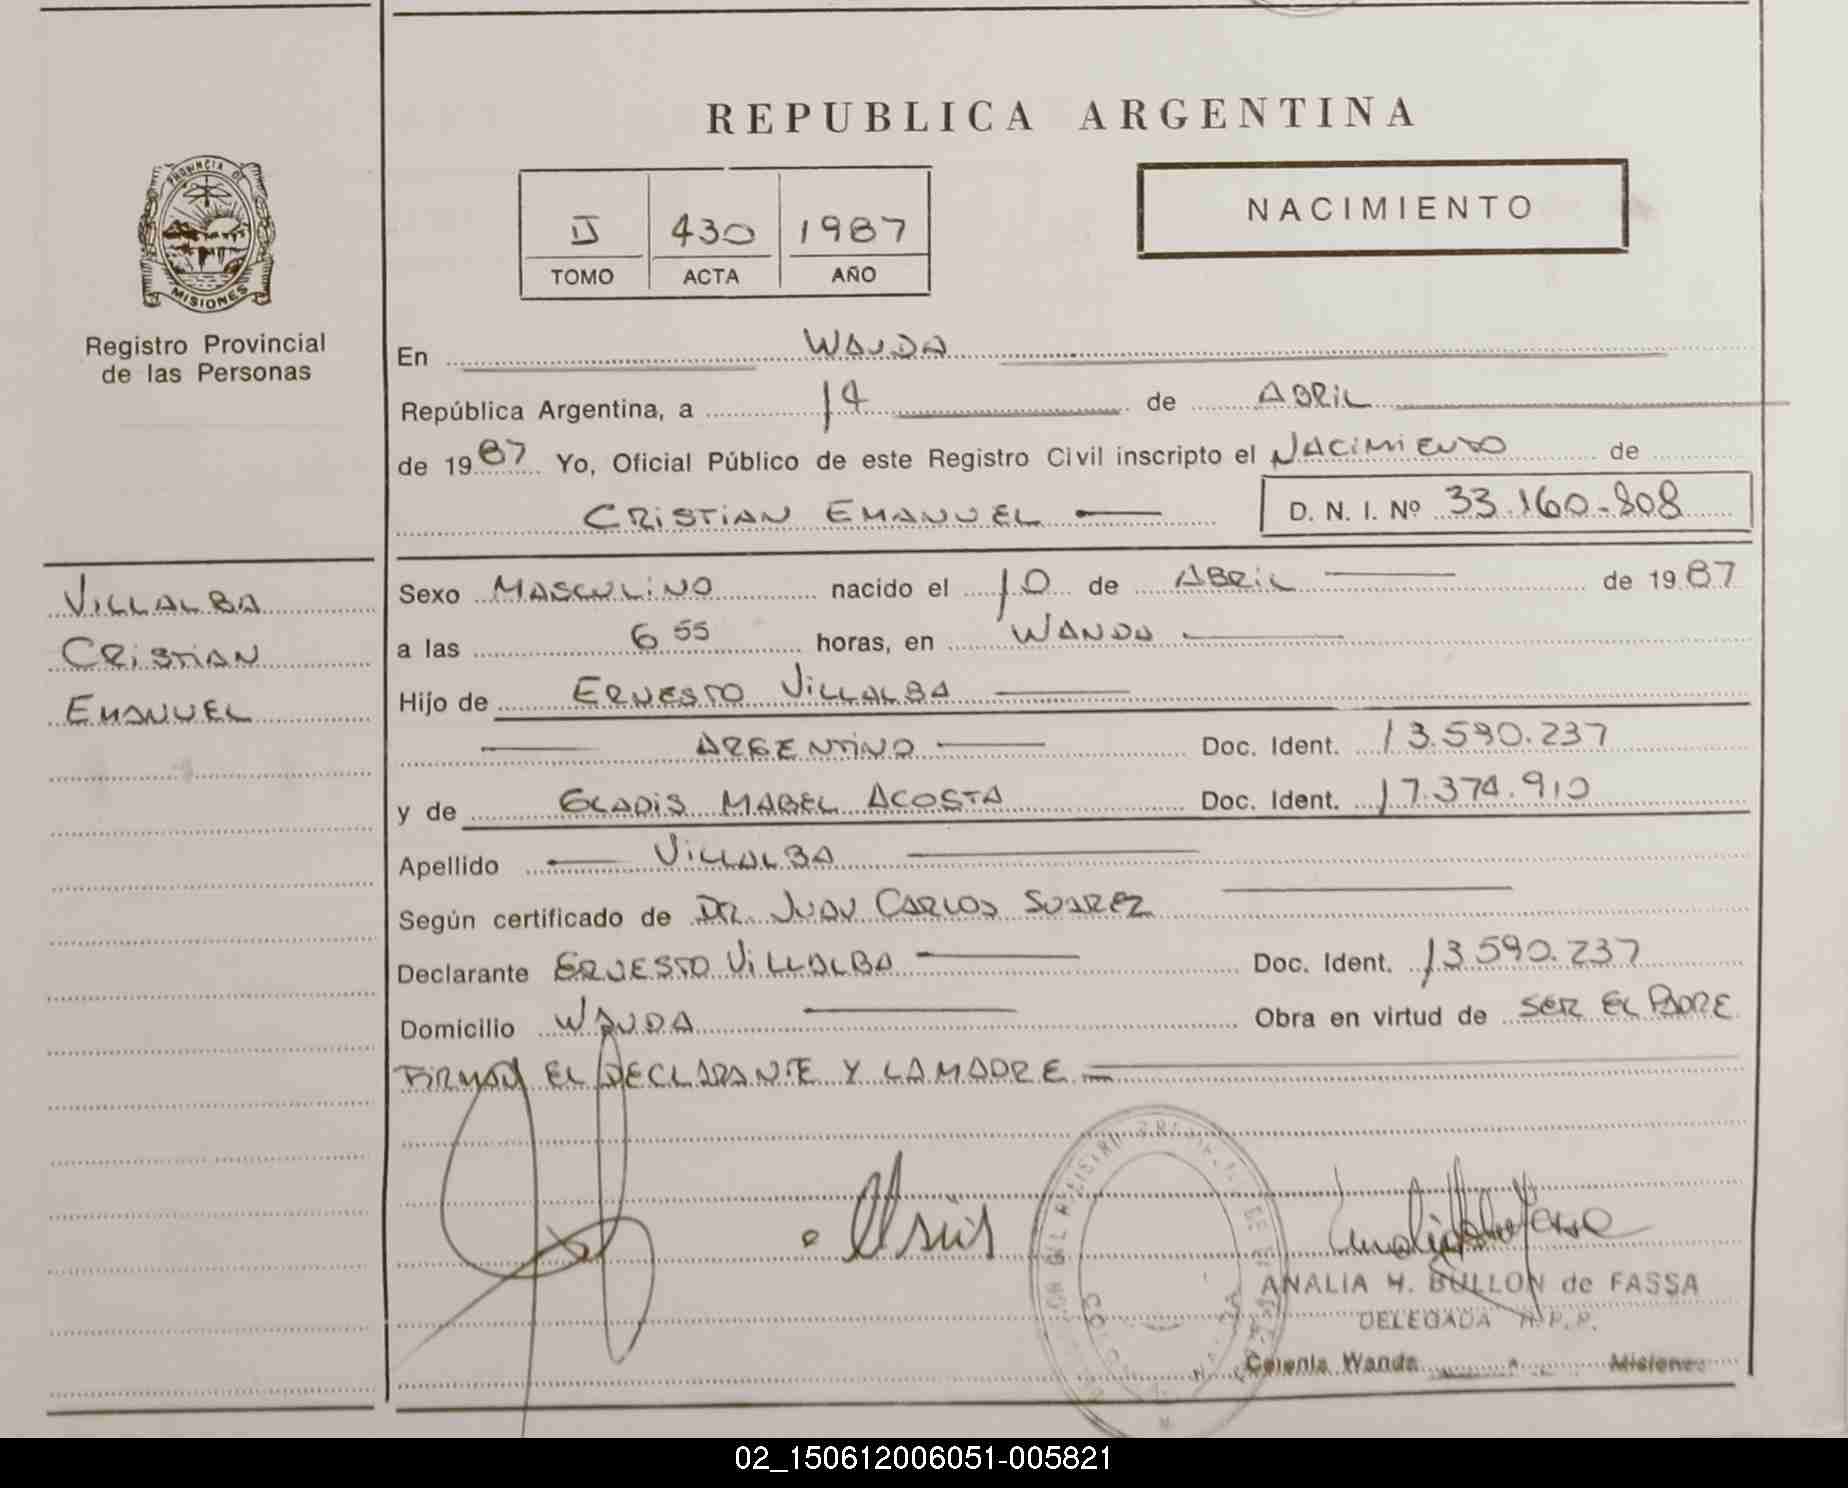 REPUBLICA ARGENTINA
PROVINCIA DE
MISIONES
Registro Provincial
de las Personas
II 430 1987
TOMO ACTA AÑO
NACIMIENTO
En WANDA
República Argentina, a 14 de ABRIL
de 1987 Yo, Oficial Público de este Registro Civil inscripto el NACIMIENTO de
CRISTIAN EMANUEL D. N. I. Nº 33.160.808
VILLALBA
CRISTIAN
EMANUEL
Sexo MASCULINO nacido el 10 de ABRIL de 1987
a las 6 55 horas, en WANDA
Hijo de ERNESTO VILLALBA
ARGENTINO Doc. Ident. 13.590.237
y de GLADIS MABEL ACOSTA Doc. Ident. 17.374.910
Apellido VILLALBA
Según certificado de DR. JUAN CARLOS SUAREZ
Declarante ERNESTO VILLALBA Doc. Ident. 13.590.237
Domicilio WANDA Obra en virtud de SER EL PADRE
FIRMAN EL DECLARANTE Y LA MADRE
ANALIA H. BULLON de FASSA
DELEGADA R.P.P.
Colonia Wanda Misiones
02_150612006051-005821